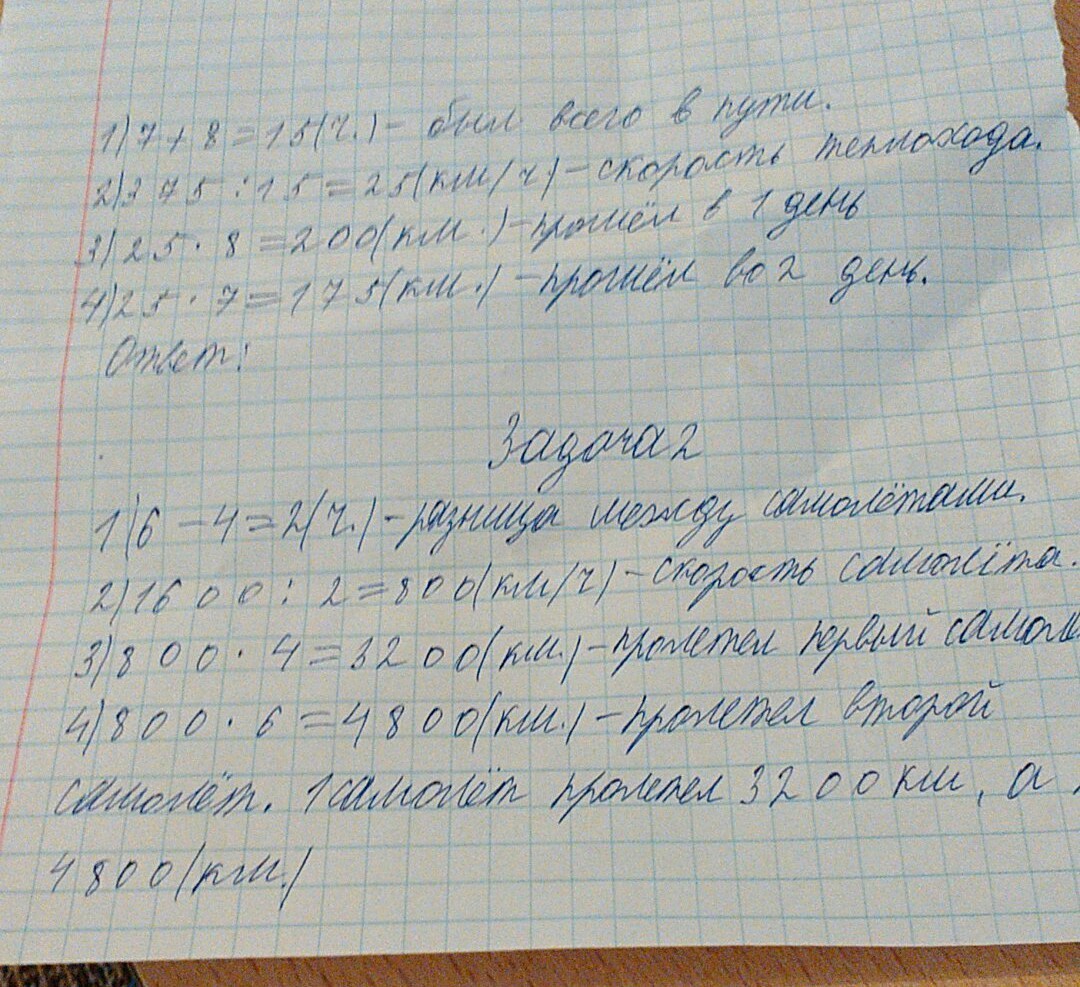 1) 7 + 8 = 15 (ч.) - был всего в пути.
2) 375 : 15 = 25 (км/ч) - скорость теплохода.
3) 25 · 8 = 200 (км.) - прошёл в 1 день
4) 25 · 7 = 175 (км.) - прошёл во 2 день.
Ответ:
Задача 2
1) 6 - 4 = 2 (ч.) - разница между самолётами.
2) 1600 : 2 = 800 (км/ч) - скорость самолёта.
3) 800 · 4 = 3200 (км.) - пролетел первый самолё
4) 800 · 6 = 4800 (км.) - пролетел второй
самолёт. 1 самолёт пролетел 3200 км, а
4800 (км.)